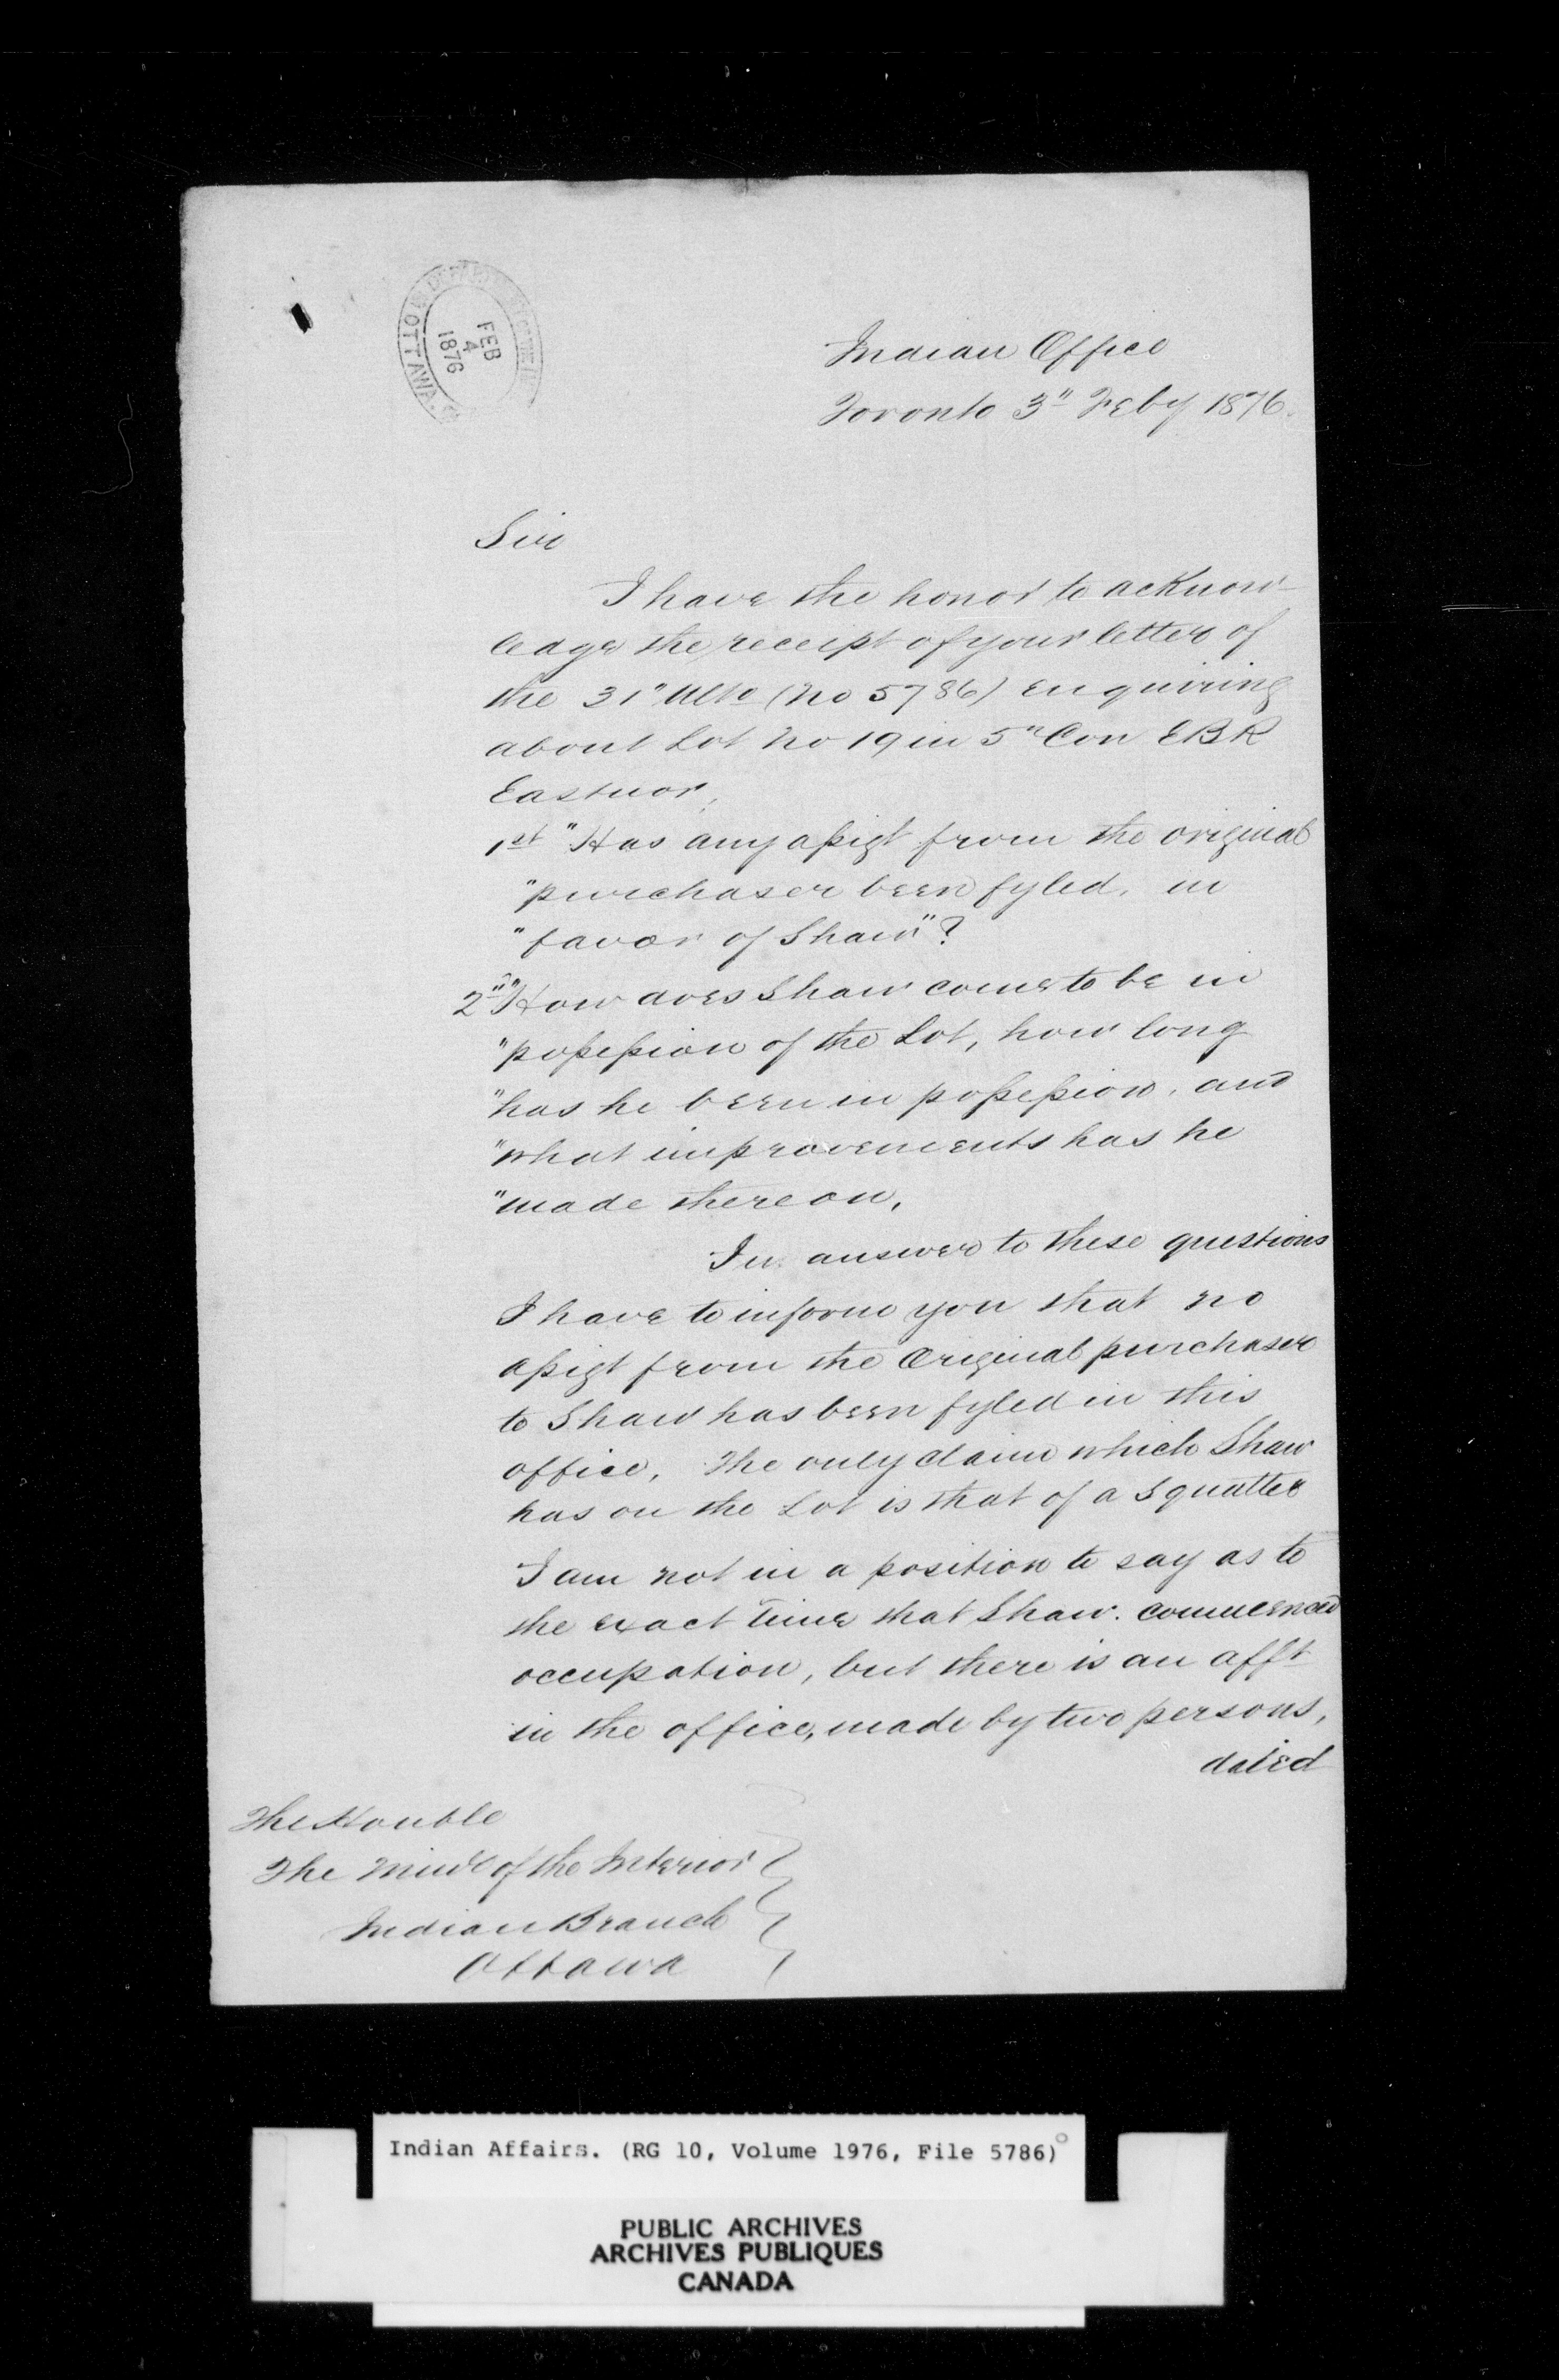 FEB
4
1876
OTTAWA
Indian Office
Toronto 3" Feby 1876.
Sir
I have the honor to acknow-
ledge the receipt of your letter of
the 31" Ulto (No 5786) enquiring
about Lot No 19 in 5" Con EBR
Eastnor,
1st "Has any assigt from the original
"purchaser been fyled, in
"favor of Shaw"?
2" "How does Shaw come to be in
"possession of the Lot, how long
"has he been in possession, and
"what improvements has he
"made thereon,
In answer to these questions
I have to inform you that no
assigt from the Original purchaser
to Shaw has been fyled in this
office, The only claim which Shaw
has on the Lot is that of a Squatter
I am not in a position to say as to
the exact time that Shaw. commenced
occupation, but there is an afft
in the office, made by two persons,
dated
The Honble
The Minr of the Interior
Indian Branch
Ottawa
Indian Affairs. (RG 10, Volume 1976, File 5786)
PUBLIC ARCHIVES
ARCHIVES PUBLIQUES
CANADA